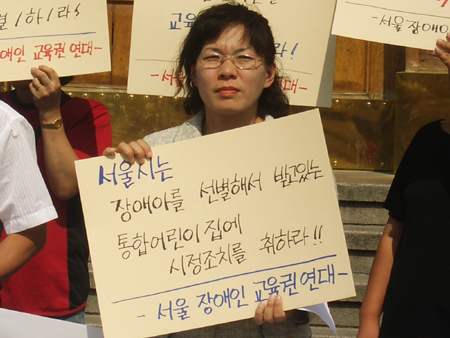 하라!
장애인 교육권 연대-
교육권
라!
-서울
-서울 장애인
서울시는
장애아를 선별해서 받고있는
통합어린이집에
시정조치를 취하라!!
-서울 장애인 교육권 연대-